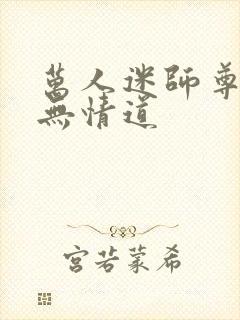 萬人迷師尊
無情道
宮若蒙希